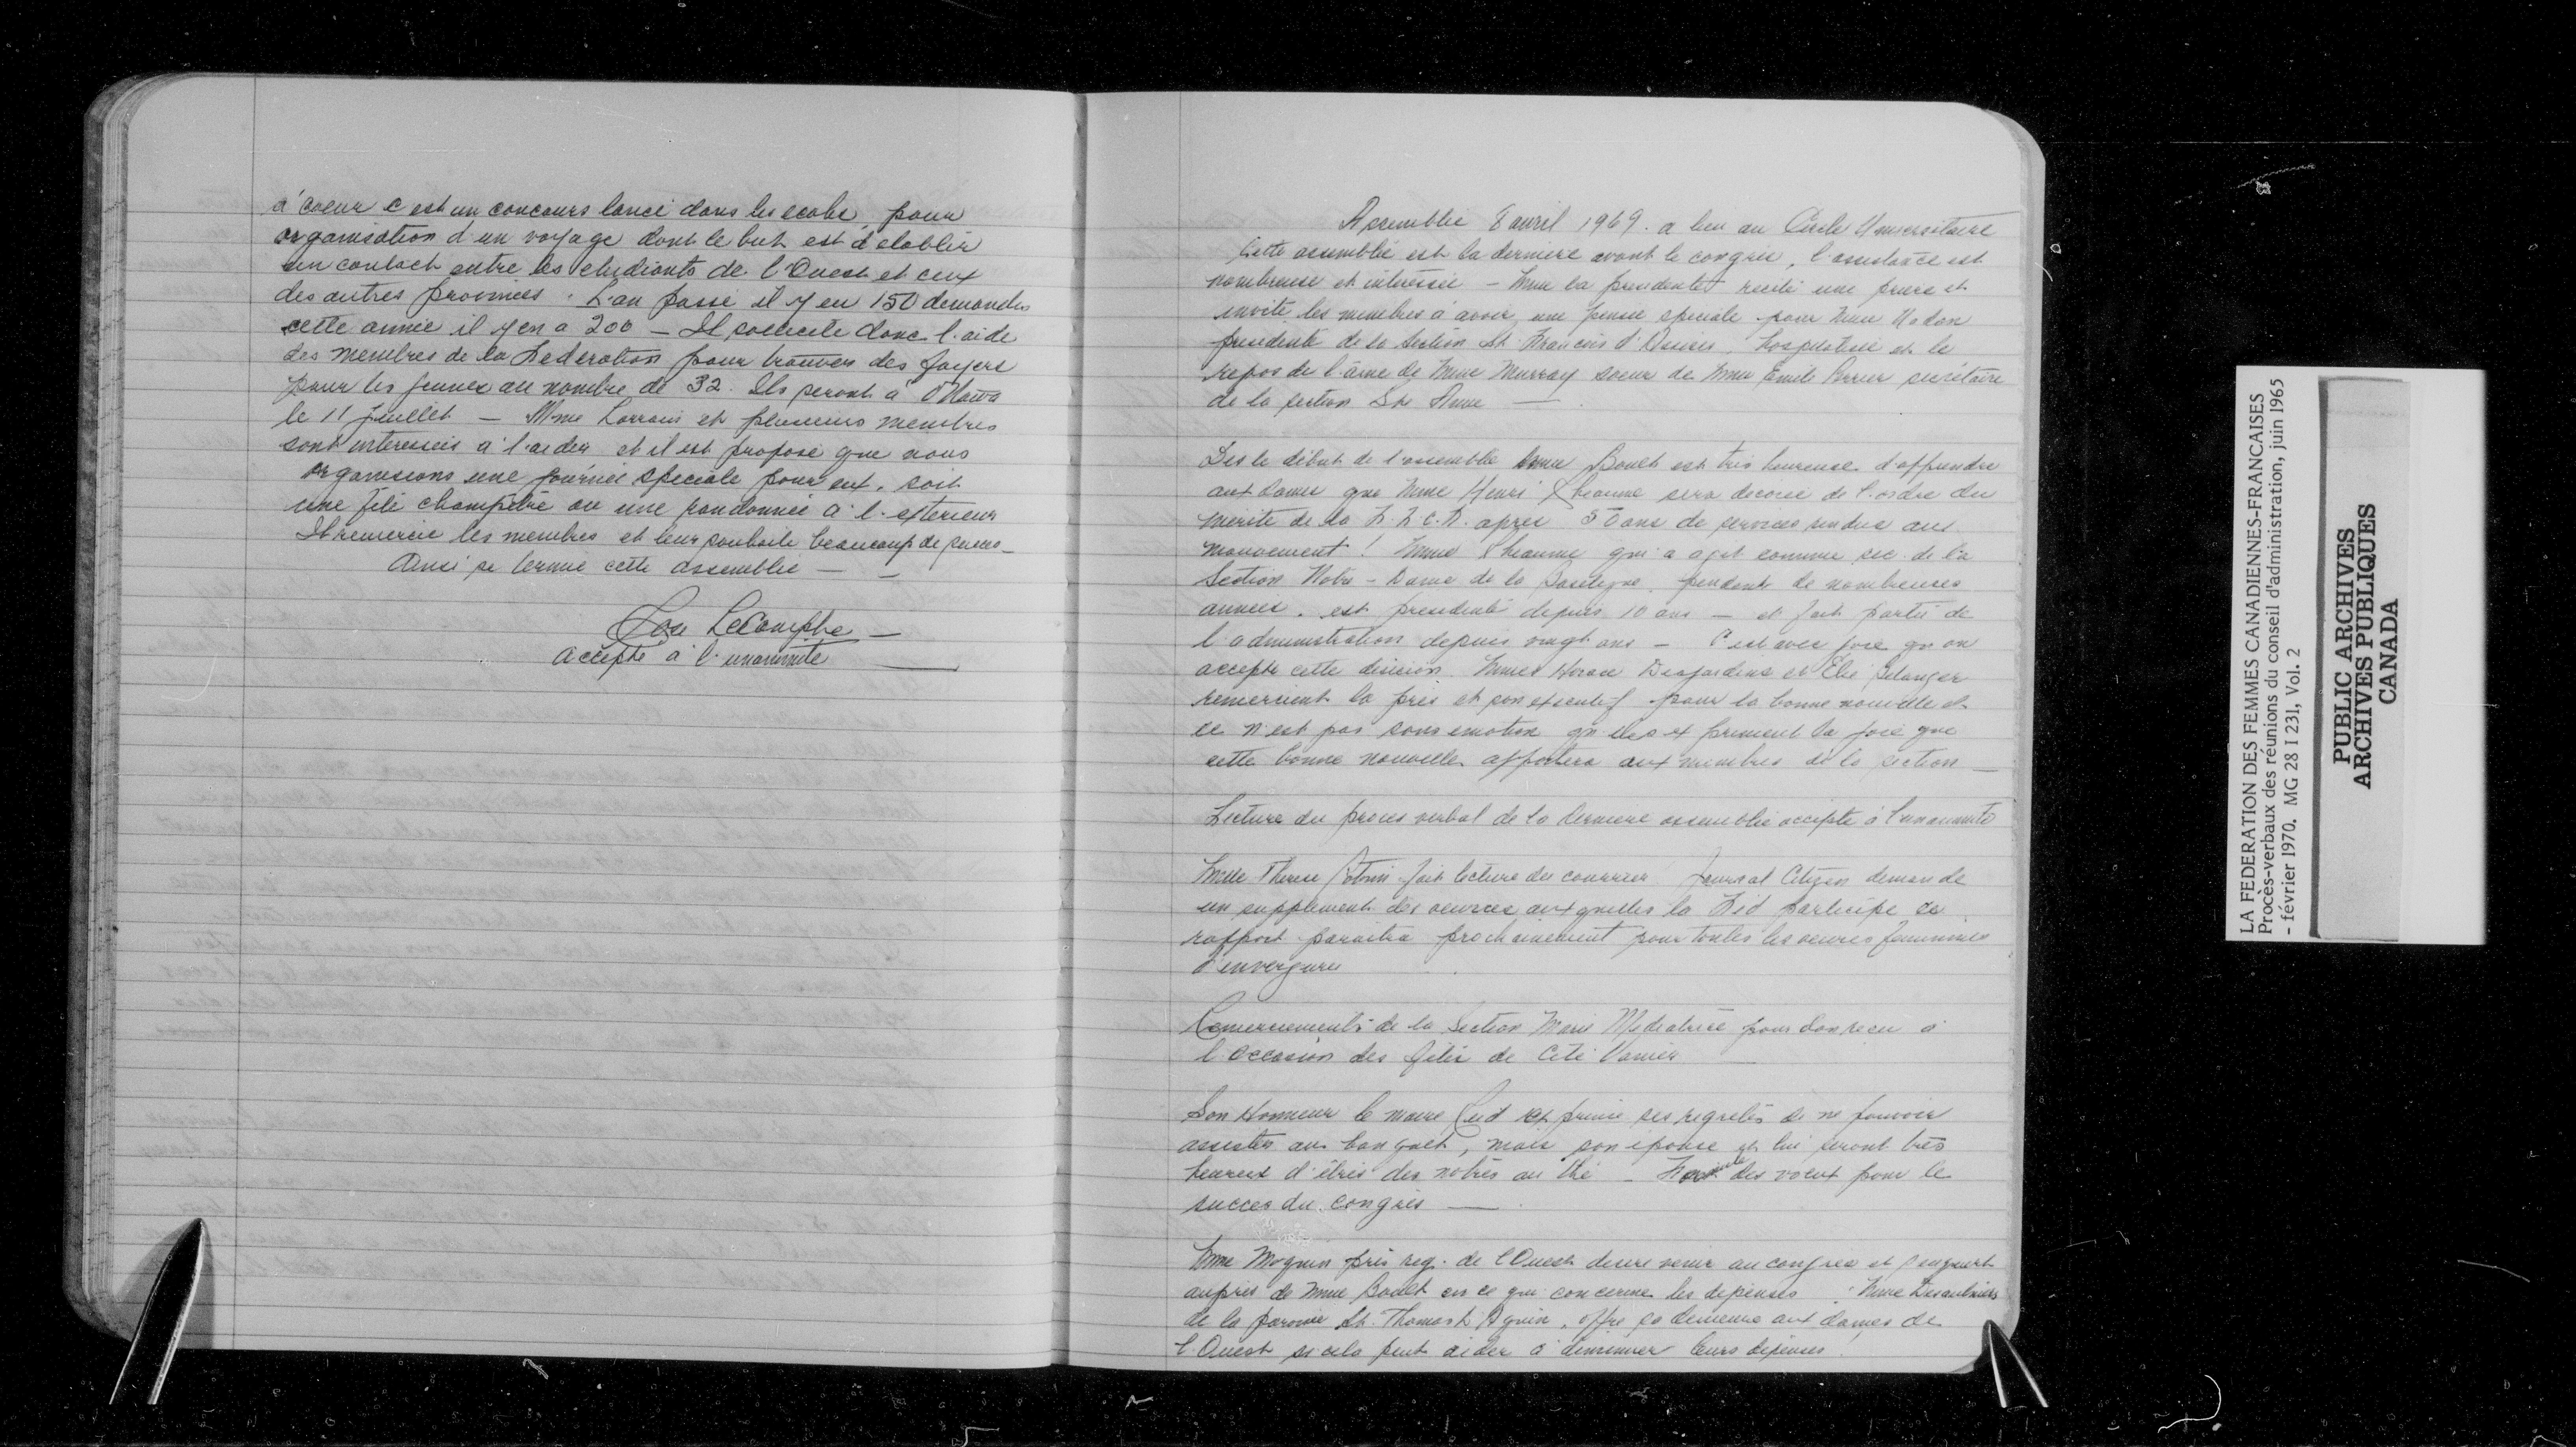 à coeur c est un concours lancé dans les ecoles pour
organisation d un voyage dont le but est d'etablir
un contact entre les etudiants de l'Ouest et ceux
des autres provinces. L'an passé il y eu 150 demandes
cette année il y en a 200 — Il sollicite donc l'aide
des membres de la Federation pour trouver des foyers
pour les jeunes au nombre de 32. Ils seront à Ottawa
le 11 juillet — Mme Lorrain et plusieurs membres
sont interessés à l'aider et il est proposé que nous
organisions une journée speciale pour eux, soit
une fête champêtre ou une randonnée à l'exterieur
Il remercie les membres et leur souhaite beaucoup de succes —
Ainsi se termine cette assemblée — —
LeCompte —
accepté à l'unanimité —
Assemblée 8 avril 1969. a lieu au Cercle Universitaire
Cette assemblée est la derniere avant le congrès, l'assistance est
nombreuse et interessée — Mme la presidente recite une priere et
invite les membres à avoir une pensée speciale pour Mme Nadon
presidente de la section St. François d'Assises, hospitalisée et le
repos de l'âme de Mme Murray soeur de Mme Emile Perrier secrétaire
de la section Ste Anne —
Des le début de l'assemblée Mme Boult est très heureuse d'apprendre
aux dames que Mme Henri Rheaume sera decorée de l'ordre du
merite de la F.F.C.F. apres 50 ans de services rendus au
mouvement! Mme Rheaume qui a agit comme sec. de la
Section Notre-Dame de la Basilique pendant de nombreuses
années, est presidente depuis 10 ans — et fait partie de
l'administration depuis vingt ans — C'est avec joie qu on
accepte cette decision. Mmes Horace Desjardins et Elie Belanger
remercient la prés et son executif pour la bonne nouvelle et
ce n'est pas sans emotion qu elles expriment la joie que
cette bonne nouvelle apportera aux membres de la section —
Lecture du proces verbal de la derniere assemblée accepté à l'unanimité
Mlle Therese fait lecture du courrier Journal Citizen demande
un supplement des oeuvres auxquelles la Fed participe ce
rapport paraitra prochainement pour toutes les oeuvres feminines
d'envergure
Remerciements de la Section Marie Mediatrice pour don recu à
l'occasion des fêtes de Cité Vanier
Son Honneur le maire Reid exprime ses regrets de ne pouvoir
assister au banquet, mais son epouse et lui seront très
heureux d'être des notres au thé — des voeux pour le
succes du congrès —
Mme Moquin prés reg. de l'Ouest desire venir au congrès et s'enquert
aupres de Mme Boult en ce qui concerne les depenses. Mme Desaulniers
de la paroisse St. Thomas d'Aquin, offre sa demeure aux dames de
l'Ouest si cela peut aider à diminuer leurs dépenses.
LA FEDERATION DES FEMMES CANADIENNES-FRANCAISES
Procès-verbaux des réunions du conseil d'administration, juin 1965
- février 1970. MG 28 I 231, Vol. 2
PUBLIC ARCHIVES
ARCHIVES PUBLIQUES
CANADA